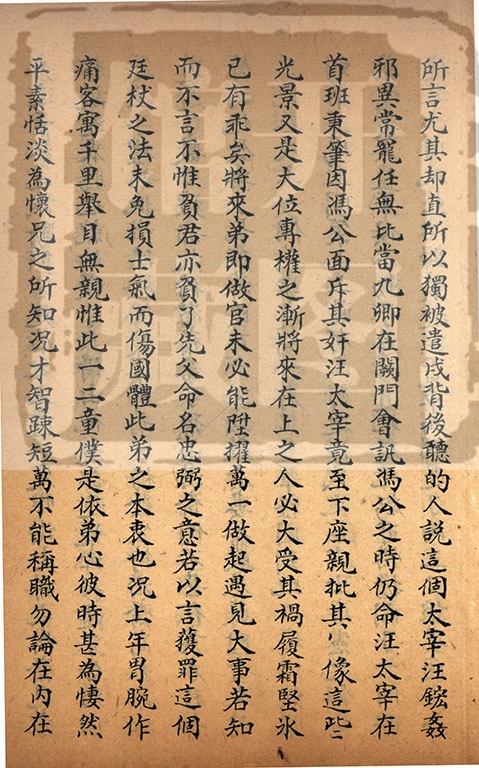 所言尤其却直所以獨被遣戍背後聽的人説這個太宰汪鋐姦
邪異常寵任無比當九卿在闕門會訊馮公之時仍命汪太宰在
首班秉筆因馮公面斥其奸汪太宰竟至下座親批其
像這些
光景又是大位專權之漸將來在上之人必大受其禍履霜堅氷
已有乖矣將來弟即做官未必能陞擢萬一做起遇見大事若知
而不言不惟負君亦負了先父命名忠弼之意若以言獲罪這個
廷杖之法未免損士氣而傷國體此弟之本衷也况上年胃腕作
痛客寓千里舉目無親惟此一二童僕是依弟心彼時甚為悽然
平素恬淡為懷兄之所知况才智疎短萬不能稱職勿論在內在